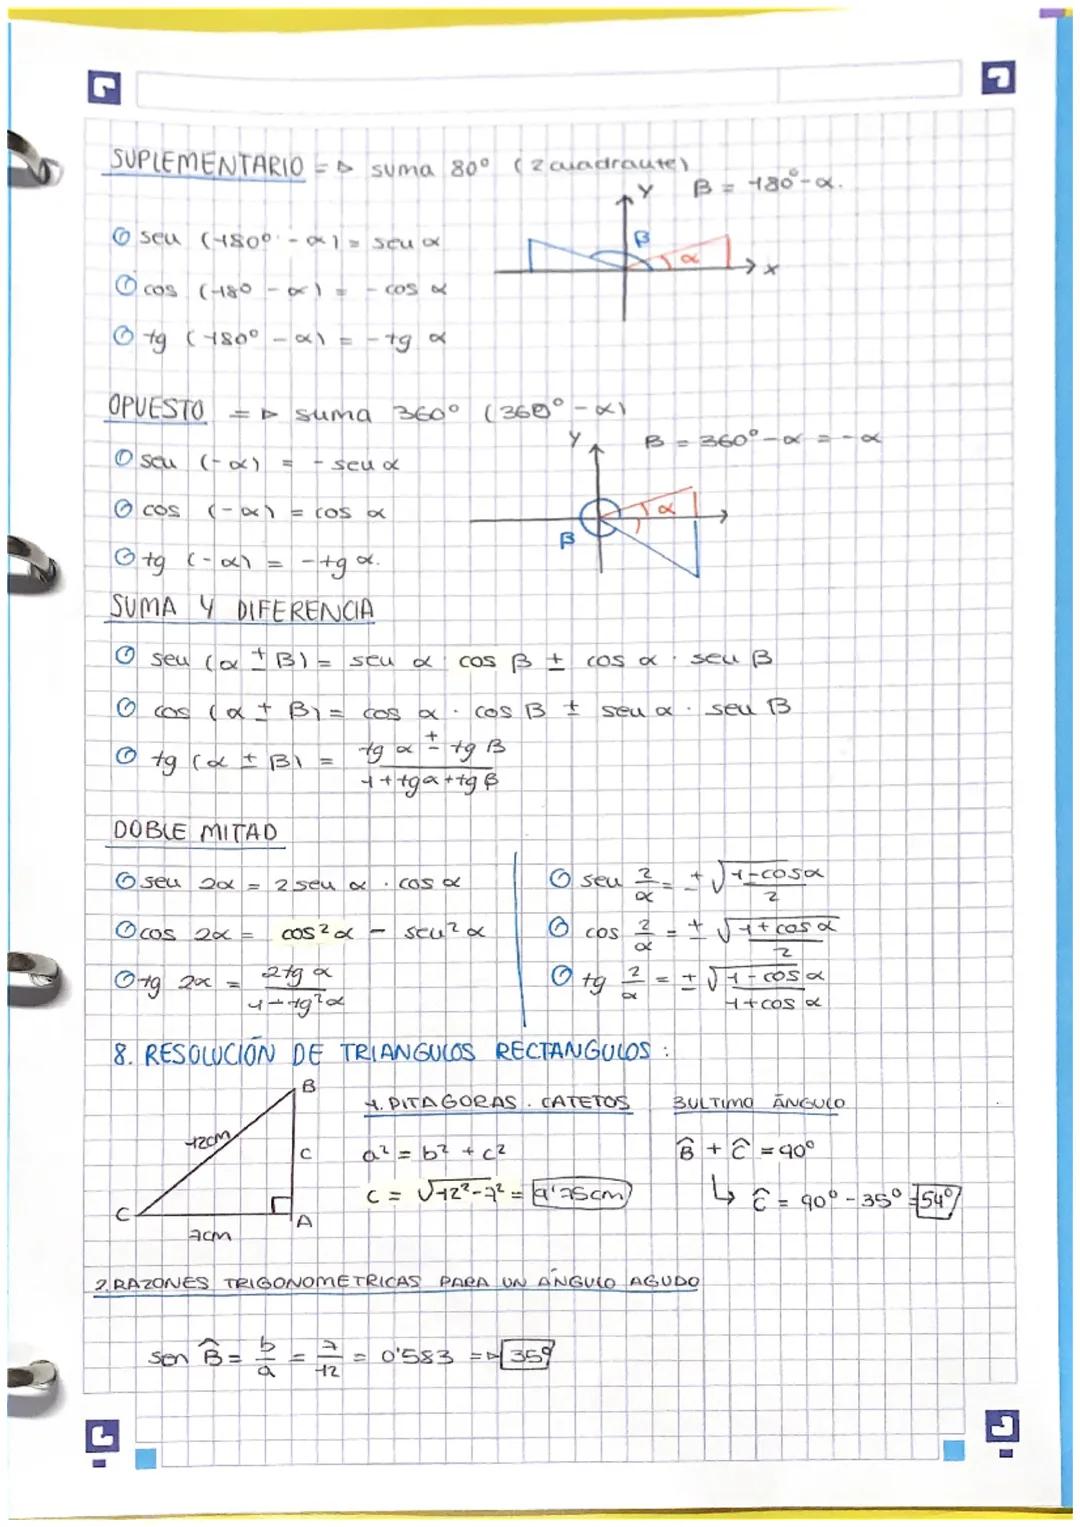 SUPLEMENTARIO => suma 80° (2 cuadrante)
Y B = 180° - α.
sen (180° - α) = sen α
β
α
x
cos (180 - α) = - cos α
tg (180° - α) = - tg α
OPUESTO => suma 360° (360° - α)
Y B = 360° - α = - α
sen (-α) = - sen α
cos (-α) = cos α
α
β
tg (-α) = - tg α.
SUMA Y DIFERENCIA
sen (α ± B) = sen α cos β ± cos α · sen B
cos (α ± B) = cos α · cos B ± sen α · sen B
tg (α ± B) = tg α ± tg B / 1 + tg α + tg β
DOBLE MITAD
sen 2α = 2 sen α · cos α
sen 2/α = ± √1-cos α / 2
cos 2α = cos² α - sen² α
cos 2/α = ± √1 + cos α / 2
tg 2α = 2 tg α / 1 - tg² α
tg 2/α = ± √1 - cos α / 1 + cos α
8. RESOLUCIÓN DE TRIANGULOS RECTANGULOS :
B
12cm
C
C
A
7cm
1. PITAGORAS . CATETOS
a² = b² + c²
c = √12²-7² = 9'75cm
3 ULTIMO ÁNGULO
B̂ + Ĉ = 90°
↳ Ĉ = 90° - 35° = 54°
2. RAZONES TRIGONOMETRICAS PARA UN ÁNGULO AGUDO
sen B̂ = b/a = 7/12 = 0'583 => 35°